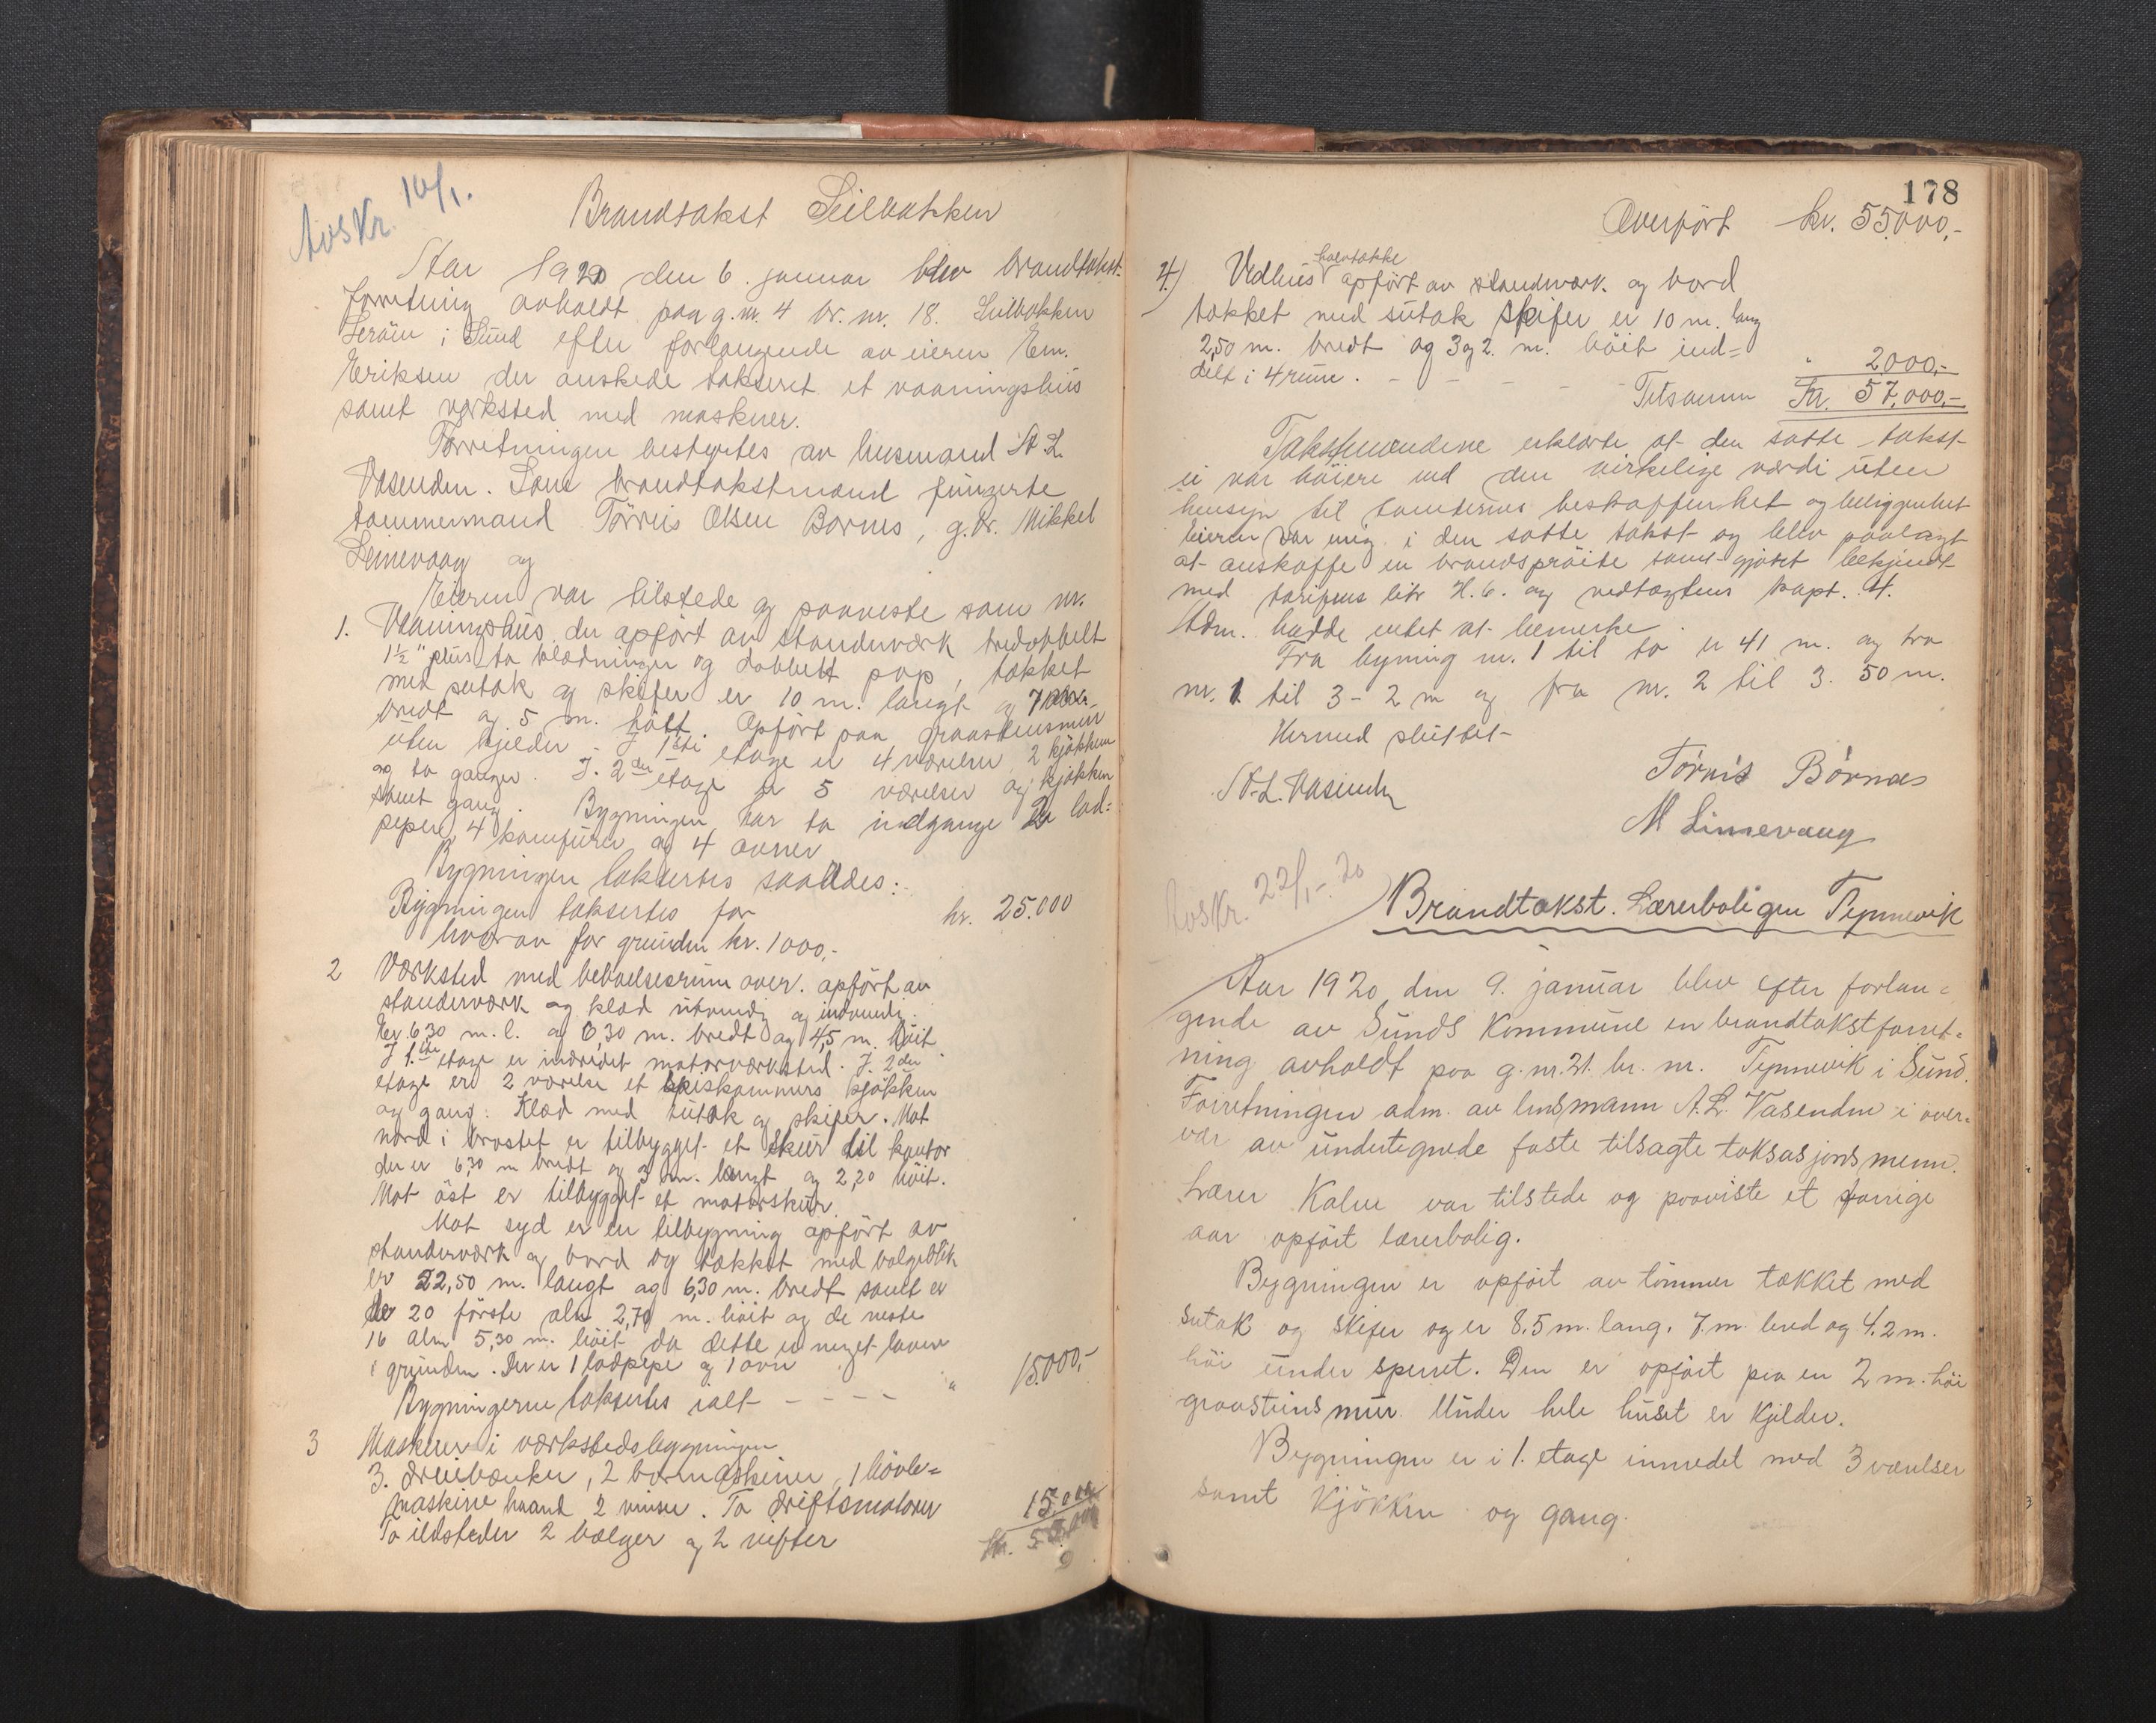 Avskr. 10/1.
Brandtakst Leilbakken
Aar 1920 den 6. januar blev brandtakst-
forretning avholdt paa g.nr. 4 br. nr. 18. Leilbakken
Lerøen i Sund efter forlangende av eieren Em.
Eriksen der ønskede takseret et vaaningshus
samt verksted med maskiner.
Forretningen bestyrtes av lensmand A L
Vasenden. Som brandtakstmænd fungerte
tømmermand Tørris Olsen Børnes, g.br. Mikkel
Leinevaag og
Eieren var tilstede og paaviste som nr.
1. Vaaningshus der opført av standerværk tredobbelt
1½" plus to klædninger og dobbelt pap, tækket
med sutak og skifer er 10 m. langt og 7
bredt og 5 m. høit. Opført paa graastensmur
uten kjelder - I 1ste etage er 4 værelser 2 kjøkken
og to ganger. I. 2den etage er 5 værelser og kjøkken
samt gang. Bygningen har to indgange 2 lad=
peper, 4 komfurer og 4 ovner
Bygningen taksertes saaledes:
Bygningen taksertes for kr. 25.000
hvorav for grunden kr. 1000,-
2 Værksted med beboelsesrum over. opført av
standerværk og klæd utvendig og indvendig.
Er 6,30 m. l. og 6,30 m. bredt og 4,5 m. høit
I 1.ste etage er indredet motorværksted. I. 2den
etage er 2 værelse et spiskammers kjøkken
og gang. Klæd med sutak og skifer. Mot
nord i brøstet er tilbygget et skur til kontor
der er 6,30 m bredt og 3 m. langt og 2,20 høit.
Mot øst er tilbygget et motorskur.
Mot syd er en tilbygning opført av
standerværk og bord og tækket med bølgeblik
er 22,50 m. langt og 6,30 m. bredt samt er
de 20 første aln 2,70 m. høit og de neste
16 aln 5,30 m. høit da dette er noget lavere
i grunden. Der er 1 ladpepe og 1 ovn
Bygningerne taksertes ialt - - - - " 15000,-
3 Maskiner i værkstedsbygningen
3. dreiebænker, 2 bormaskiner, 1 høvle=
maskine haand 2 vinser. To driftsmotorer
To ildsteder 2 bælger og 2 vifter 15.000
kr. 55.000
178
Overført kr. 55000,-
4.) Vedhus halvtække opført av standværk. og bord
tækket med sutak skifer er 10 m. lang
2,50 m. bredt og 3 og 2. m. høit ind=
delt i 4 rum. - - - - - " 2000,-
Tilsamm Kr. 57,000,-
Takstmændene erklærte at den satte takst
ei var høiere end den virkelige værdi uten
hensyn til tomternes beskaffenhet og beliggenhet
Eieren var enig i den satte takst og blev paalagt
at anskaffe en brandsprøite samt gjøret bekjendt
med tarifens litr H. 6. og vedtægtens kapt. 4.
Adm. hadde intet at bemerke.
Fra byning nr. 1 til to er 41 m. og fra
nr. 1 til 3 - 2 m og fra nr. 2 til 3. 50 m.
Hermed sluttet
A. L. Vasenden
Tørris Børnes
M Linnevaag
Avskr. 22/1-20
Brandtakst. Lærerboligen Tyrnevik
Aar 1920 den 9. januar blev efter forlan=
gende av Sunds Kommune en brandtakstforret=
ning avholdt paa g. nr. 21. br. nr. Tyrnevik i Sund.
Forretningen adm. av lensmann A. L. Vasenden i over=
vær av undertegnede faste tilsagte taksasjonsmenn.
Lærer Kalve var tilstede og paaviste et forrige
aar opført lærerbolig.
Bygningen er opført av tømmer tækket med
sutak og skifer og er 8.5 m. lang. 7. m. bred og 4.2 m.
høi under sperret. Den er opført paa en 2 m. høi
graasteins mur. Under hele huset er kjelder.
Bygningen er i 1. etage innredet med 3 værelser
samt kjøkken og gang.